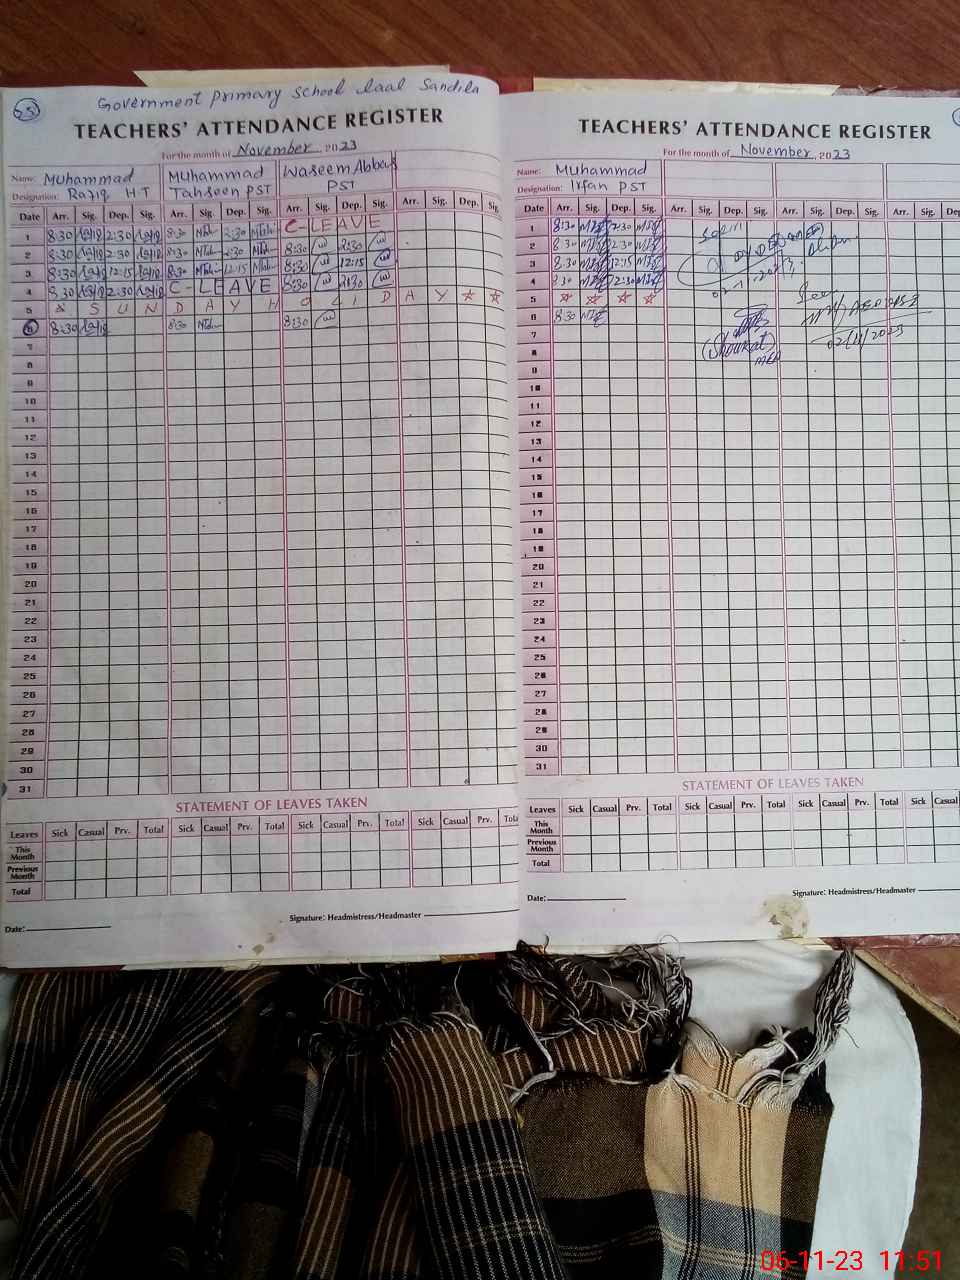 Government primary school laal Sandila
TEACHERS' ATTENDANCE REGISTER
For the month of November 2023
Name: Muhammad Muhammad Waseem Abbas
Designation: Raziq HT Tahseen PST PST
Date Arr. Sig. Dep. Sig. Arr. Sig. Dep. Sig. Arr. Sig. Dep. Sig. Arr. Sig. Dep. Sig.
1 8:30 2:30 8:30 2:30 C-LEAVE
2 8:30 2:30 8:30 2:30 8:30 2:30
3 8:30 12:15 8:30 12:15 8:30 12:15
4 8:30 2:30 C-LEAVE 8:30 2:30
5 SUNDAY H D A Y
6 8:30 8:30 8:30
7
8
9
10
11
12
13
14
15
16
17
18
19
20
21
22
23
24
25
26
27
28
29
30
31
STATEMENT OF LEAVES TAKEN
Leaves Sick Casual Prv. Total Sick Casual Prv. Total Sick Casual Prv. Total Sick Casual Prv. Total
This Month
Previous Month
Total
Signature: Headmistress/Headmaster
Date:
TEACHERS' ATTENDANCE REGISTER
For the month of November, 2023
Name: Muhammad
Designation: Irfan PST
Date Arr. Sig. Dep. Sig. Arr. Sig. Dep. Sig. Arr. Sig. Dep. Sig. Arr. Sig.
1 8:30 2:30
2 8:30 2:30
3 8:30 12:15
4 8:30 2:30
5
6 8:30
7
8
9
10
11
12
13
14
15
16
17
18
19
20
21
22
23
24
25
26
27
28
29
30
31
02-11-2023
02/11/2023
(Shoukat)
MEA
STATEMENT OF LEAVES TAKEN
Leaves Sick Casual Prv. Total Sick Casual Prv. Total Sick Casual Prv. Total Sick Casual
This Month
Previous Month
Total
Date:
Signature: Headmistress/Headmaster
06-11-23 11:51